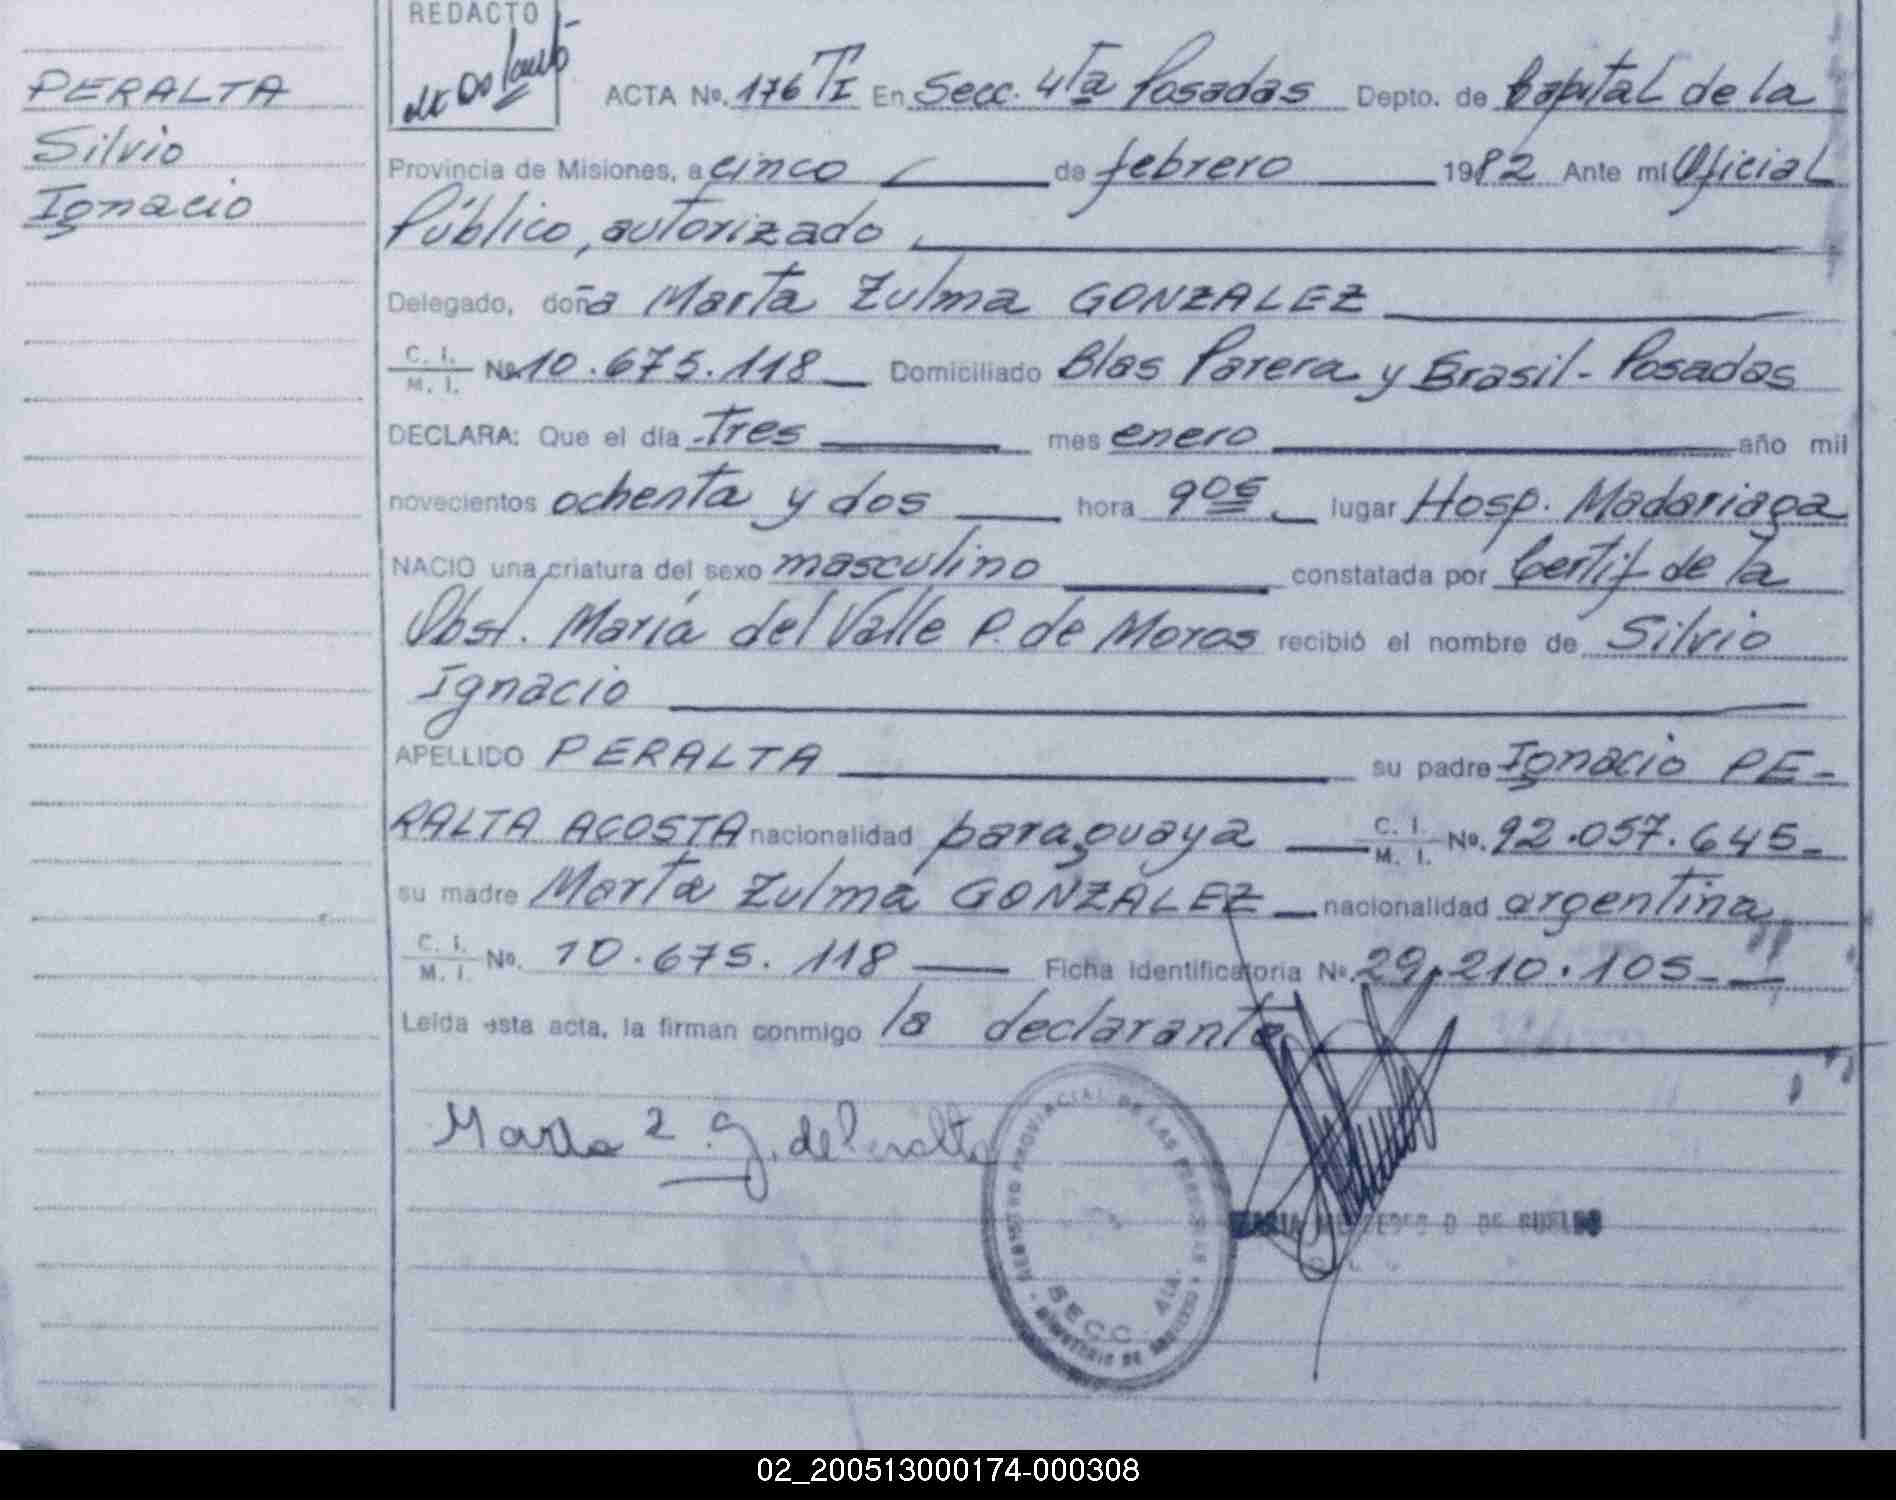 PERALTA
Silvio
Ignacio
REDACTO
ACTA No. 176 TI En Secc. 4ta Posadas Depto. de Capital de la
Provincia de Misiones, a cinco de febrero 1982 Ante mi Oficial
Público, autorizado
Delegado, doña Marta Zulma GONZALEZ
C. I. / M. I. No. 10.675.118 Domiciliado Blas Parera y Brasil - Posadas
DECLARA: Que el día tres mes enero año mil
novecientos ochenta y dos hora 905 lugar Hosp. Madariaga
NACIO una criatura del sexo masculino constatada por Certif de la
Obst. María del Valle P. de Moros recibió el nombre de Silvio
Ignacio
APELLIDO PERALTA su padre Ignacio PE-
RALTA ACOSTA nacionalidad paraguaya C. I. / M. I. No. 92.057.645-
su madre Marta Zulma GONZALEZ nacionalidad argentina
C. I. / M. I. No. 10.675.118 Ficha Identificatoria No. 29.210.105-
Leída esta acta, la firman conmigo la declarante
Marta Z. G. de Peralta
REGISTRO PROVINCIAL DE LAS PERSONAS
SECC. 4ta.
MINISTERIO DE
MARIA MERCEDES D. DE
02_200513000174-000308